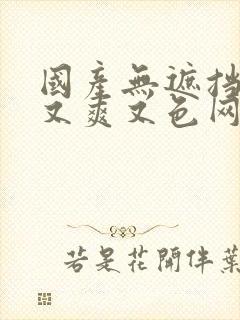 國產無遮挡
又爽又色网
若是花開伴葉